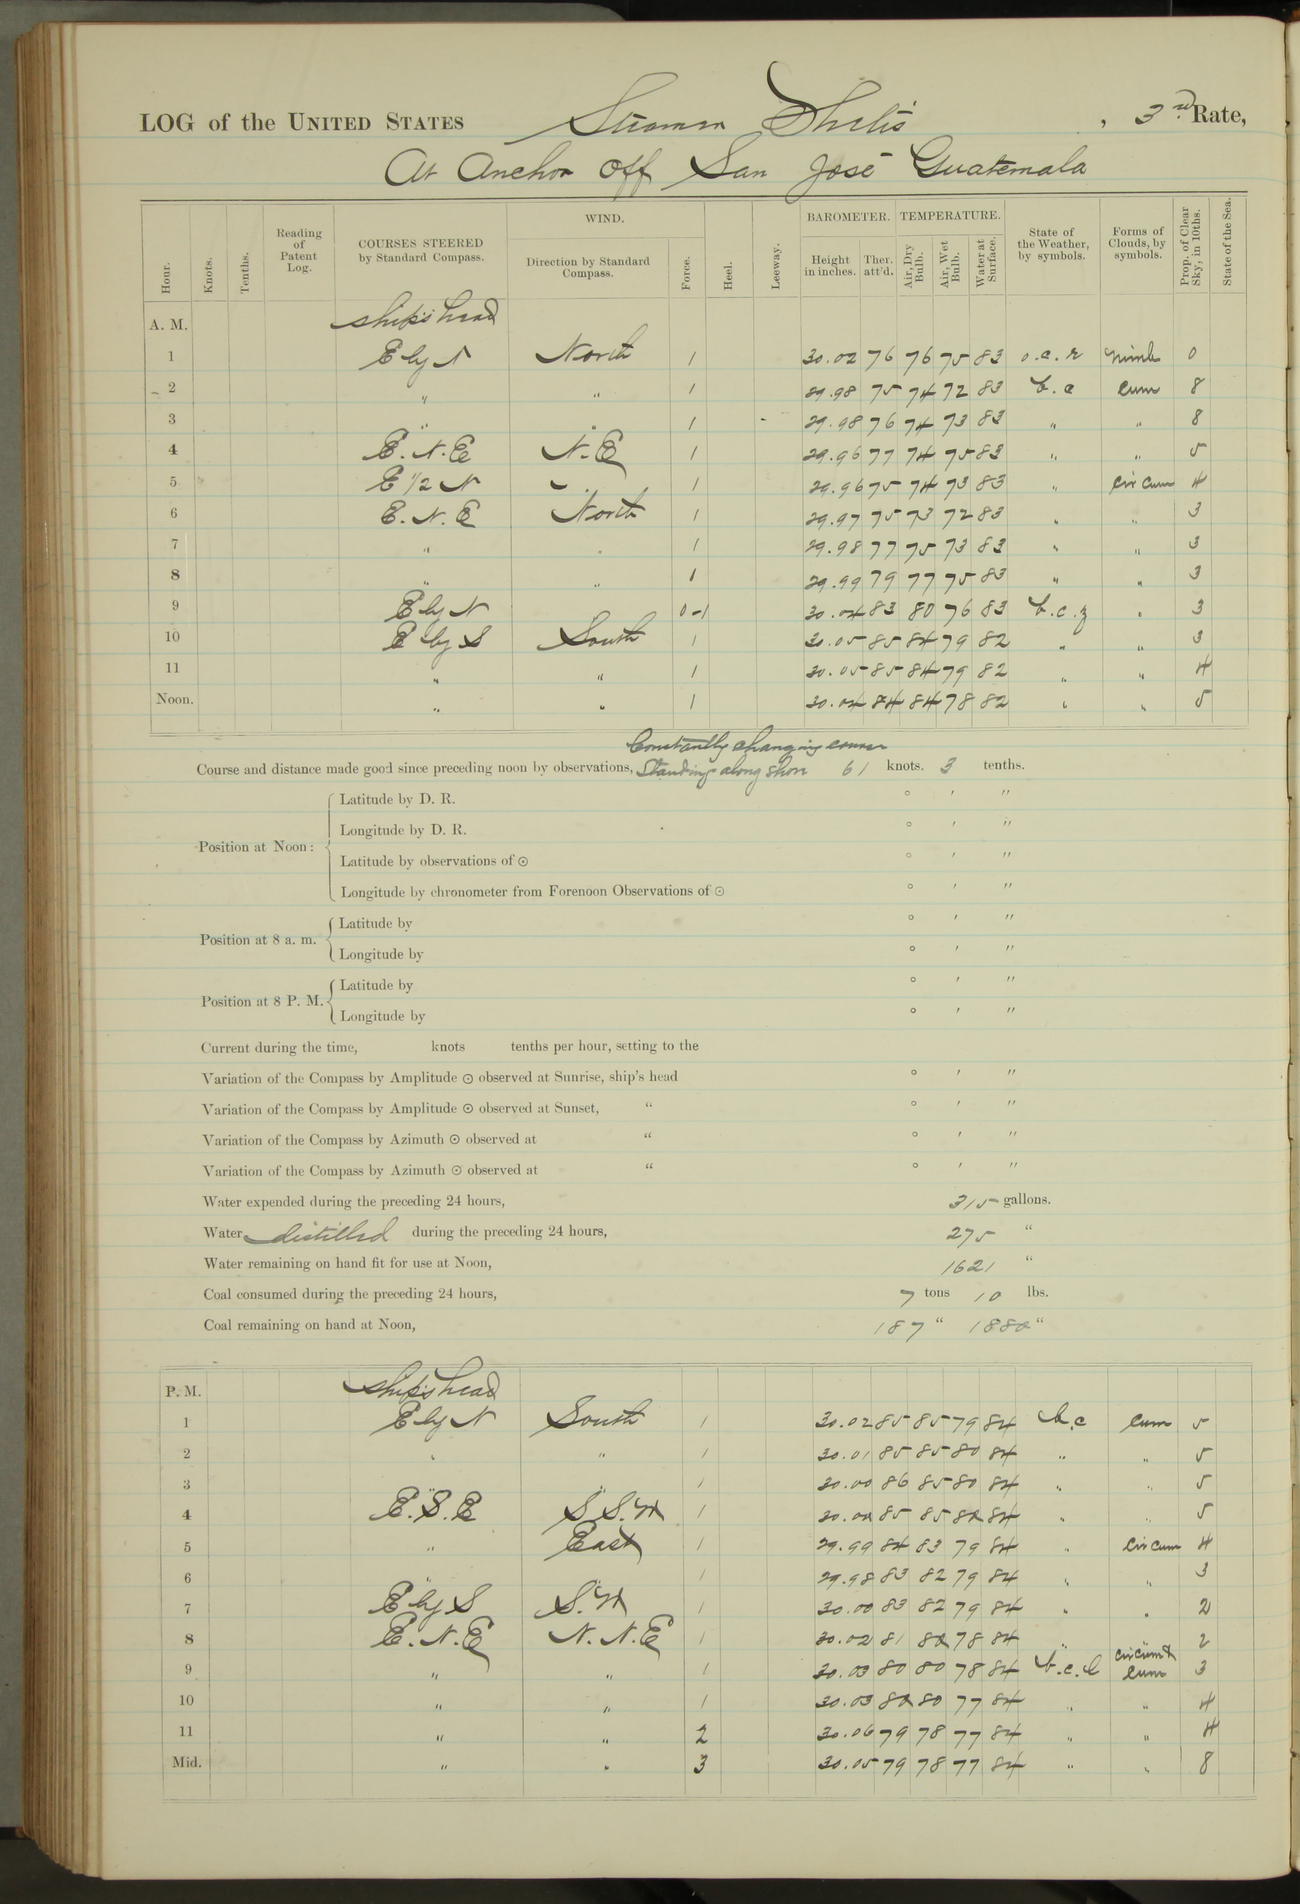 LOG of the UNITED STATES Steamer Thetis, 3rd Rate,
At Anchor off San José Guatemala
Hour. Knots. Tenths. Reading of Patent Log. COURSES STEERED by Standard Compass. WIND. Direction by Standard Compass. Force. Heel. Leeway. BAROMETER. Height in inches. Ther. att'd. TEMPERATURE. Air, Dry Bulb. Air, Wet Bulb. Water at Surface. State of the Weather, by symbols. Forms of Clouds, by symbols. Prop. of Clear Sky, in 10ths. State of the Sea.
A. M. ship's head
1 E by N North 1 30.02 76 76 75 83 o.c.r Nimb 0
2 " " 1 29.98 75 74 72 83 b.c Cum 8
3 " " 1 29.98 76 74 73 83 " " 8
4 E.N.E N.E 1 29.96 77 74 75 83 " " 5
5 E 1/2 N " 1 29.96 75 74 73 83 " Cir Cum 4
6 E.N.E North 1 29.97 75 73 72 83 " " 3
7 " " 1 29.98 77 75 73 83 " " 3
8 " " 1 29.99 79 77 75 83 " " 3
9 E by N 0-1 30.04 83 80 76 83 b.c.z " 3
10 E by S South 1 30.05 85 84 79 82 " " 3
11 " " 1 30.05 85 84 79 82 " " 4
Noon. " " 1 30.04 84 84 78 82 " " 5
Constantly changing course
Course and distance made good since preceding noon by observations, Standing along shore 61 knots. 3 tenths.
Latitude by D. R. ° ′ ″
Longitude by D. R. ° ′ ″
Position at Noon:
Latitude by observations of ☉ ° ′ ″
Longitude by chronometer from Forenoon Observations of ☉ ° ′ ″
Latitude by ° ′ ″
Position at 8 a. m.
Longitude by ° ′ ″
Latitude by ° ′ ″
Position at 8 P. M.
Longitude by ° ′ ″
Current during the time, knots tenths per hour, setting to the
Variation of the Compass by Amplitude ☉ observed at Sunrise, ship's head ° ′ ″
Variation of the Compass by Amplitude ☉ observed at Sunset, " ° ′ ″
Variation of the Compass by Azimuth ☉ observed at " ° ′ ″
Variation of the Compass by Azimuth ☉ observed at " ° ′ ″
Water expended during the preceding 24 hours, 315 gallons.
Water distilled during the preceding 24 hours, 275 "
Water remaining on hand fit for use at Noon, 1621 "
Coal consumed during the preceding 24 hours, 7 tons 10 lbs.
Coal remaining on hand at Noon, 187 " 1880 "
P. M. ship's head
1 E by N South 1 30.02 85 85 79 84 b.c Cum 5
2 " " 1 30.01 85 85 80 84 " " 5
3 " " 1 30.00 86 85 80 84 " " 5
4 E.S.E S.S.W 1 30.00 85 85 80 84 " " 5
5 " East 1 29.99 84 83 79 84 " Cir Cum 4
6 " " 1 29.98 83 82 79 84 " " 3
7 E by S S.W 1 30.00 83 82 79 84 " " 2
8 E.N.E N.N.E 1 30.02 81 80 78 84 " " 2
9 " " 1 30.03 80 80 78 84 b.c.l Cir Cum & Cum 3
10 " " 1 30.03 80 80 77 84 " " 4
11 " " 2 30.06 79 78 77 84 " " 4
Mid. " " 3 30.05 79 78 77 84 " " 8